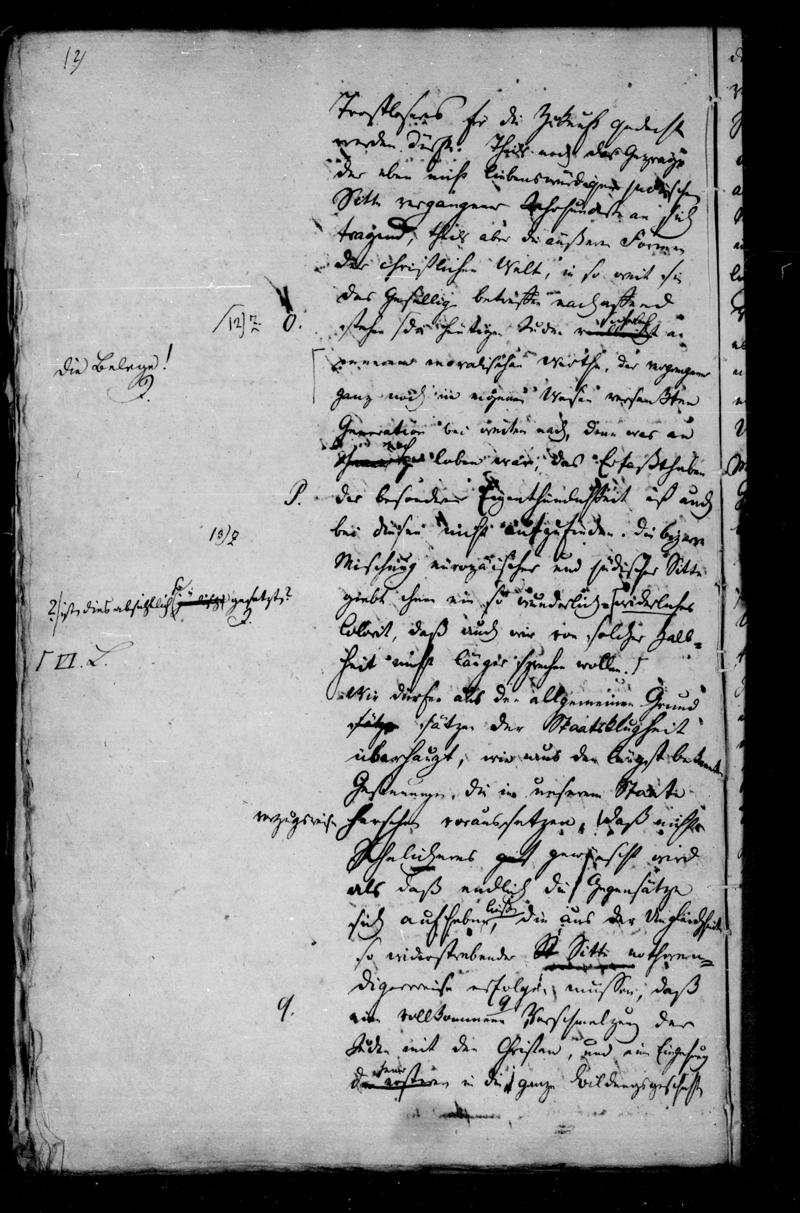 12)
Trostloseres für die Zukunft gedacht
werden dürfte. Theils noch das Gepräge
der eben nicht liebenswürdigen jüdischen
Sitte vergangener Jahrhunderte an sich
tragend, theils aber die äußern Formen
der christlichen Welt, in so weit sie
das Gefällige betreffen nachaffend
/12)2. O. stehen die heutigen Juden sicherlich an
Die Belege!
innerem moralischen Werthe, der vergangenen
ganz noch im eigenen Wesen versenkten
Generation bei weiten nach, denn was an
noch loben war, das Erfaßthaben
P. der besonderen Eigenthümlichkeit ist auch
13)2
bei diesen nicht aufzufinden. Die bizarre
Mischung europäischer und jüdischer Sitte
2/ ist dies absichtlich so gesetzt?
giebt ihnen ein so wunderlich widerliches
Colorit, daß auch wir von solcher Halb-
heit nicht länger sprechen wollen.
Γ II. L.
Wir dürfen aus den allgemeinen Grund
sätzen der Staatsklugheit
überhaupt, wie aus den längst bekannten
Gesinnungen, die in unserem Staate
vorzugsweise herrschen voraussetzen, daß nichts
gewünscht wird
als daß endlich die Gegensätze
sich aufheben, die aus der Ungleichheit
so widerstrebender Sitte nothwen-
digerweise erfolgen müssen, daß
q. eine vollkommene Verschmelzung der
Juden mit den Christen, und ein Eingehung
jener ersteren in die ganze Bildungsgeschichte